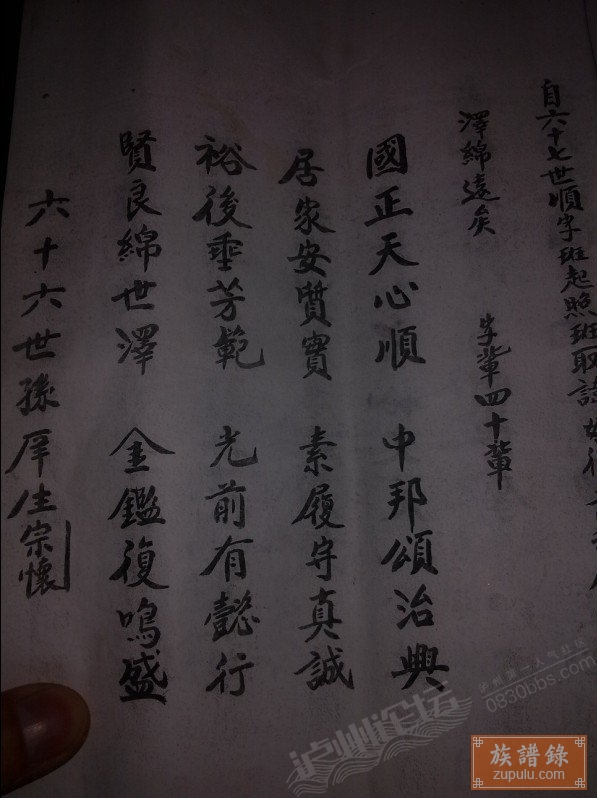 自六十七世順字班起照班取諱
澤綿遠矣 字輩四十輩
國正天心順 中邦頌治興
居家安質實 素履守真誠
裕後垂芳範 光前有懿行
賢良綿世澤 金鑑復鳴盛
六十六世孫厚生宗懷
泸州论坛
泸州第一人气社区
0830bbs.com
族譜錄
zupulu.com